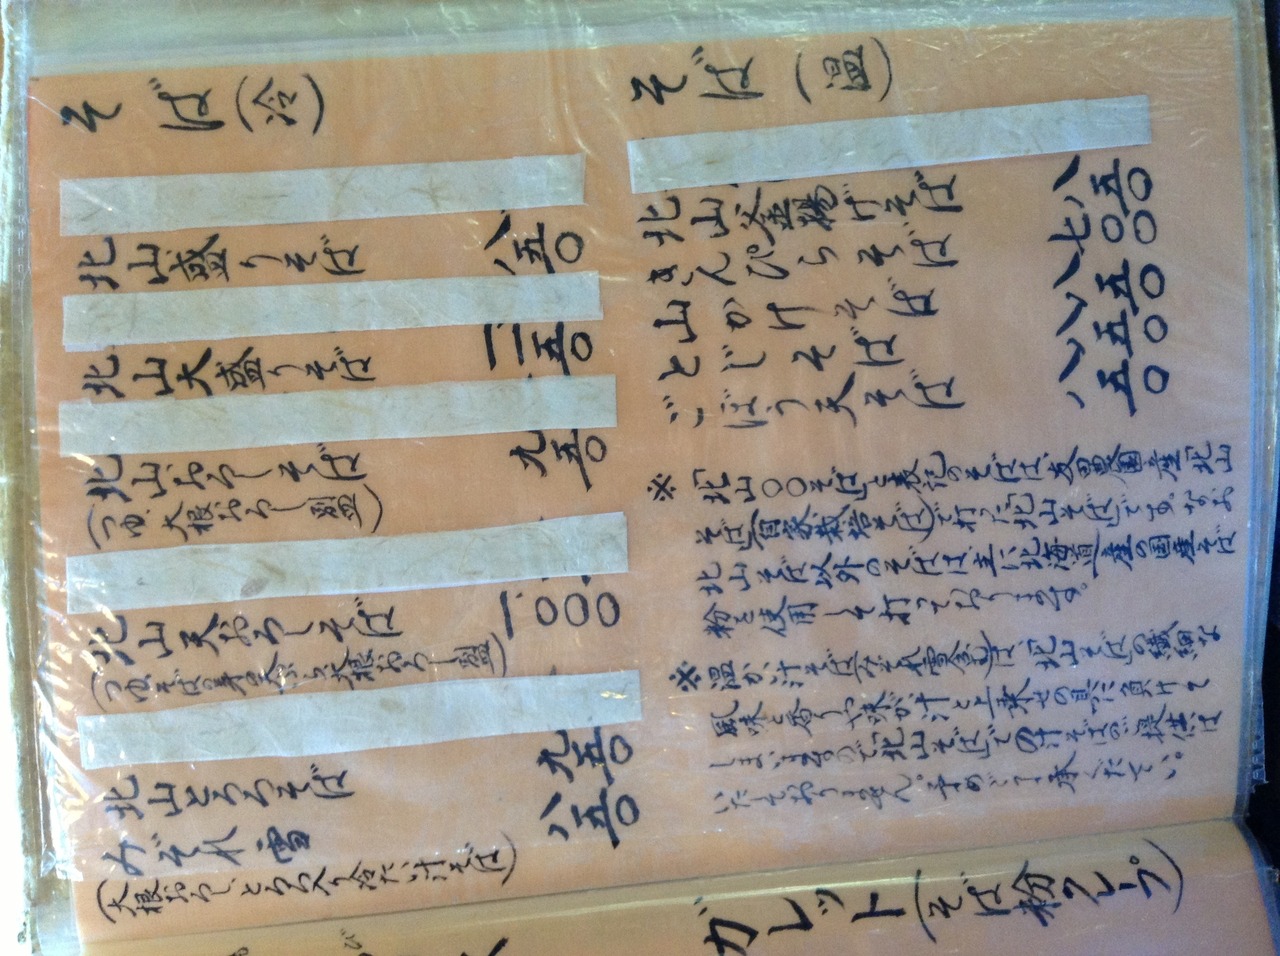 そば(冷)
北山盛りそば 八五〇
北山大盛りそば 一一五〇
北山おろしそば 九五〇
(つゆ、大根おろし、塩)
北山天おろしそば 一〇〇〇
(つゆ、そばの芽の天ぷら、大根おろし、塩)
北山とろろそば 九五〇
みぞれ雪 八五〇
(大根おろし、とろろ入り冷たい汁そば)
そば(温)
北山釜揚げそば 八五〇
きんぴらそば 七〇〇
山かけそば 八五〇
とじそば 八五〇
ごぼう天そば 八五〇
※「北山〇〇そば」と表記のそばは、産「北山
そば」(自家栽培そば)で打った「北山そば」です。なお
北山そば以外のそばは主に北海道産の国産そば
粉を使用して打っております。
※温か汁そばは「北山そば」の繊細な
風味と香りや味が汁と上乗せの具に負けて
しまいますので「北山そば」での汁そばのご提供は
いたしておりません。予めご了承ください。
ガレット(そば粉クレープ)